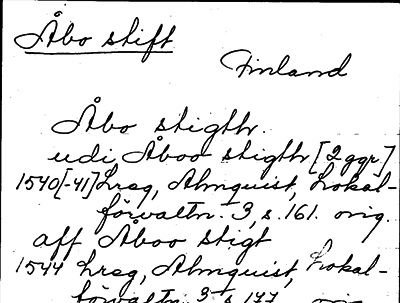 Åbo stift
Finland
Åbo stigth.
udi Åboo stigth [2 ggr.]
1540[-41] hrsg, Almquist, Lokal-
förvaltn. 3, s. 161. orig.
aff Åboo stigt
1544 hrsg, Almquist, Lokal-
förvaltn. 3 s 177 orig